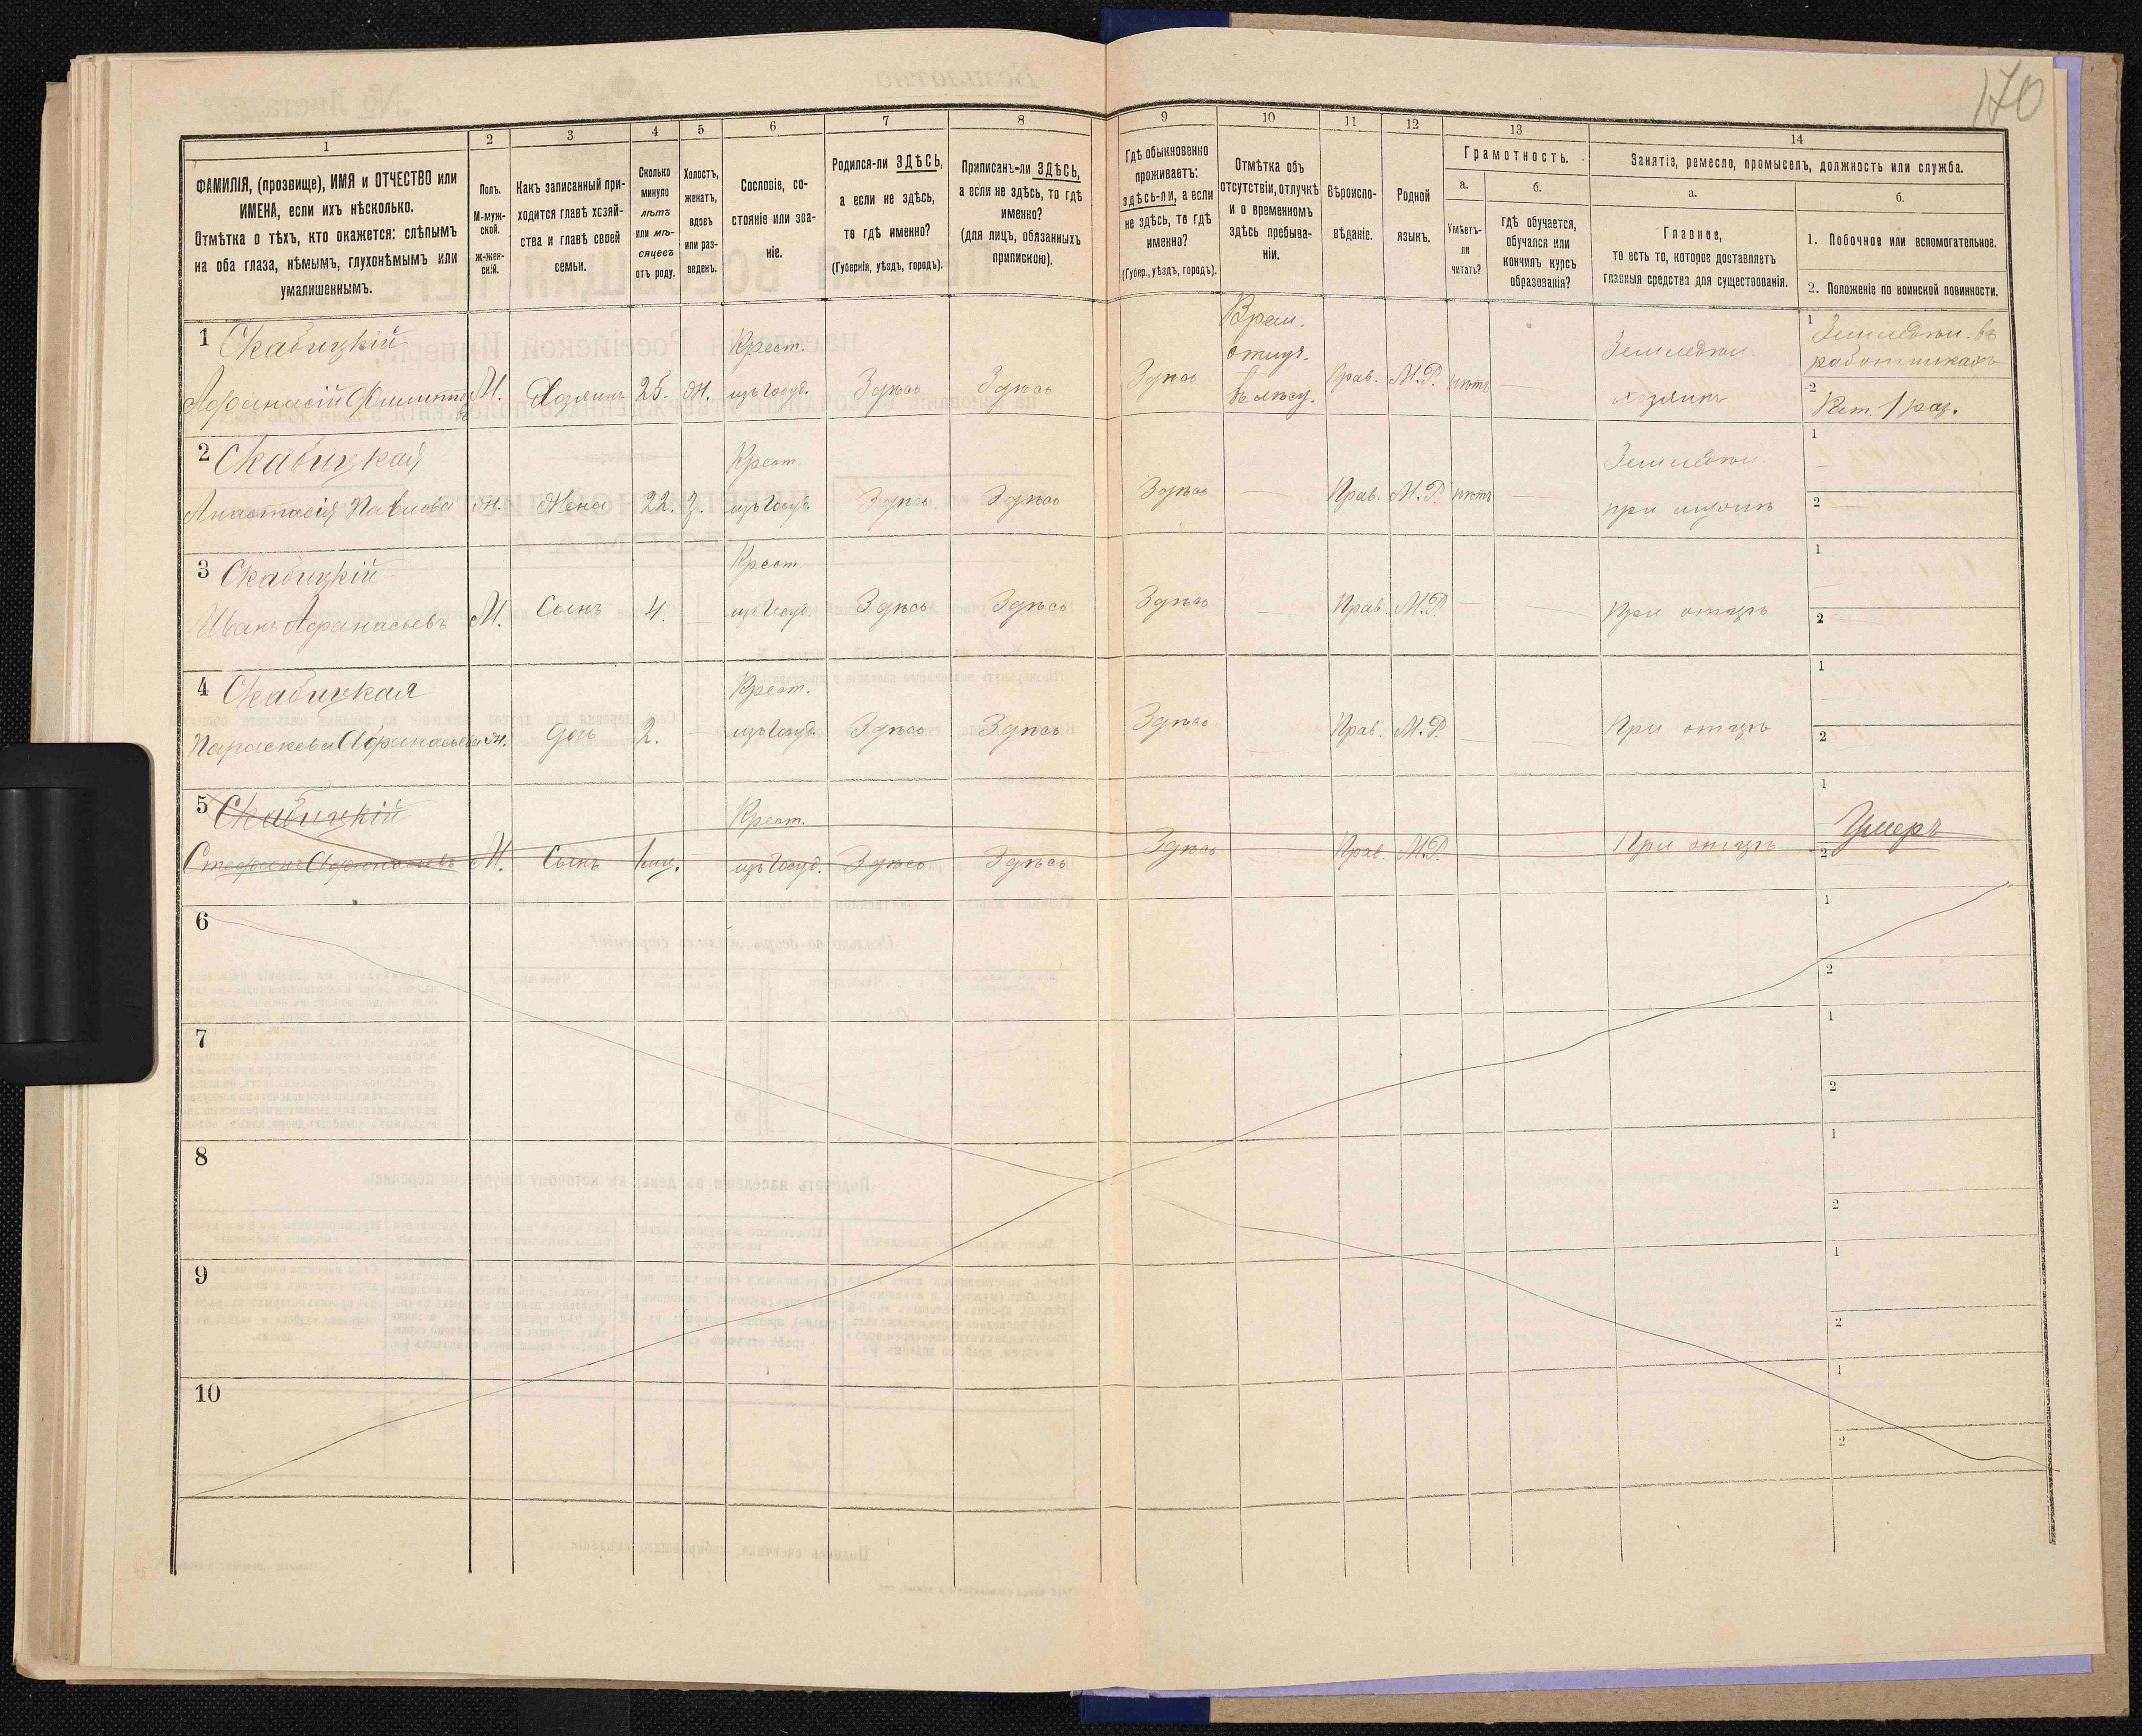 170
1
2
3
4
5
6
7
8
9
10
11
12
13
14
ФАМИЛІЯ, (прозвище), ИМЯ и ОТЧЕСТВО или
ИМЕНА, если ихъ нѣсколько.
Отмѣтка о тѣхъ, кто окажется: слѣпымъ
на оба глаза, нѣмымъ, глухонѣмымъ или
умалишеннымъ.
Полъ.
М-муж-
ской.
Ж-жен-
скій.
Какъ записанный при-
ходится главѣ хозяй-
ства и главѣ своей
семьи.
Сколько
минуло
лѣтъ
или мѣ-
сяцевъ
отъ роду.
Холостъ,
женатъ,
вдовъ
или раз-
веденъ.
Сословіе, со-
стояніе или зва-
ніе.
Родился-ли ЗДѢСЬ,
а если не здѣсь,
то гдѣ именно?
(Губернія, уѣздъ, городъ).
Приписанъ-ли ЗДѢСЬ,
а если не здѣсь, то гдѣ
именно?
(для лицъ, обязанныхъ
припискою).
Гдѣ обыкновенно
проживаетъ:
здѣсь-ли, а если
не здѣсь, то гдѣ
именно?
(Губер., уѣздъ, городъ).
Отмѣтка объ
отсутствіи, отлучкѣ
и о временномъ
здѣсь пребыва-
ніи.
Вѣроиспо-
вѣданіе.
Родной
языкъ.
Грамотность.
а.
Умѣетъ-
ли
читать?
б.
гдѣ обучается,
обучался или
кончилъ курсъ
образованія?
Занятіа, ремесло, промыселъ, должность или служба.
а.
Главное,
то есть то, которое доставляетъ
главныя средства для существованія.
б.
1. Побочное или вспомогательное.
2. Положеніе по воинской повинности.
1 Скабицкій Крест. Врем. Земледѣл. 1 Земледѣл. въ
отлуч. работникахъ
Афанасій Филипповъ М. Хозяинъ 25. Ж. изъ госуд. Здѣсь Здѣсь Здѣсь Прав. М.Р. нѣтъ — хозяинъ 2 Рат. 1 раз.
2 Скабицкая Крест. Земледѣл. 1
Анастасія Павлова Ж. Жена 22. З. изъ госуд. Здѣсь Здѣсь Здѣсь — Прав. М.Р. нѣтъ — при мужѣ 2
3 Скабицкій Крест. 1
Иванъ Афанасьевъ М. Сынъ 4. — изъ госуд. Здѣсь Здѣсь Здѣсь — Прав. М.Р. — При отцѣ 2
4 Скабицкая Крест. 1
Параскева Афанасьева Ж. Дочь 2. — изъ госуд. Здѣсь Здѣсь Здѣсь — Прав. М.Р. — — При отцѣ 2
5 Скабицкій Крест. 1 Умеръ
Стефанъ Афанасьевъ М. Сынъ 1 мц. изъ госуд. Здѣсь Здѣсь Здѣсь Прав. М.Р. При отцѣ 2
6 1
2
7 1
2
8 1
2
9 1
2
10 1
2